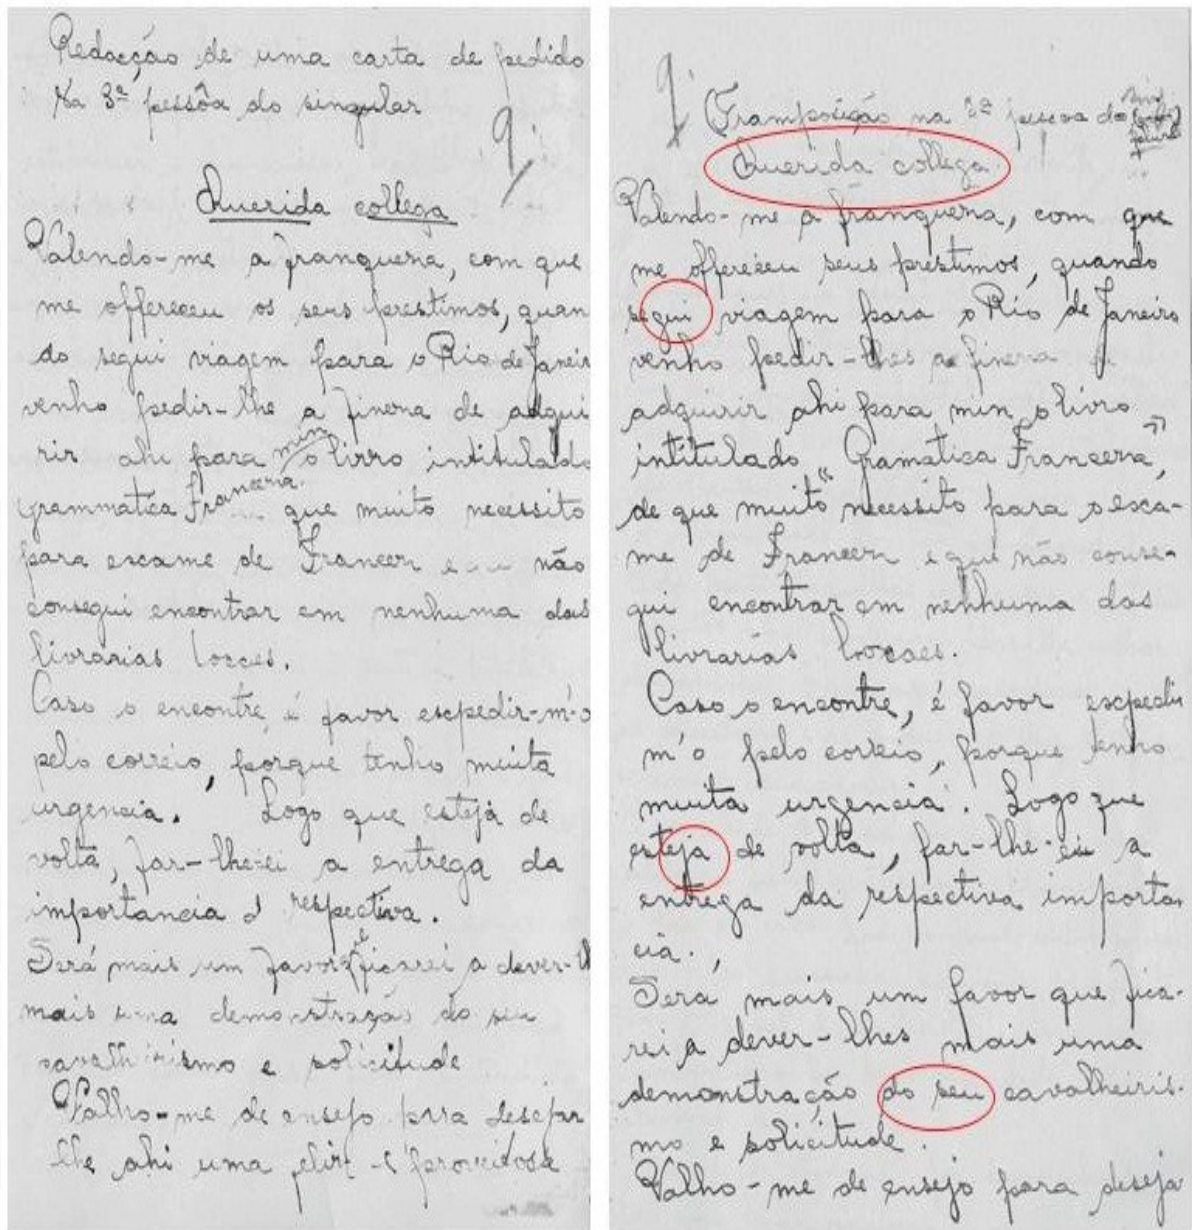 Redacção de uma carta de pedido
Na 3ª pessôa do singular
9
Querida collega
Valendo-me a franquesa, com que
me offereceu os seus prestimos, quan
do segui viagem para o Rio de Janeir
venho pedir-lhe a finesa de adqui
rir ahi para min o lirro intitulado
grammatica Francesa que muito necessito
para escame de Francez e não
consegui encontrar em nenhuma das
livrarias locaes.
Caso o encontre, é favor escpedir-m'o
pelo correio, porque tenho muita
urgencia. Logo que estejá de
volta, far-lhe-ei a entrega da
importancia respectiva.
Será mais um favor e ficarei a dever-
mais uma demonstração do seu
cavalheirismo e solicitude
Valho-me de ensejo para desejar
lhe ahi uma e proveidosa
9
Tramposição na 3ª pessoa do
Querida collega.
Valendo-me a franquesa, com que
me offereceu seus prestimos, quando
segui viagem para o Rio de Janeiro
venho pedir-lhes a finesa de
adquirir ahi para min o livro
intitulado "Gramatica Francesa",
de que muito necessito para o esca-
me de Francez e que não conse-
gui encontrar em nenhuma das
livrarias locaes.
Caso o encontre, é favor escpedir
m'o pelo correio, porque tenho
muita urgencia. Logo que
esteja de volta, far-lhe-ei a
entrega da respectiva importan
cia.
Será mais um favor que fica-
rei a dever-lhes mais uma
demonstração do seu cavalheiris-
mo e solicitude.
Valho-me de ensejo para deseja